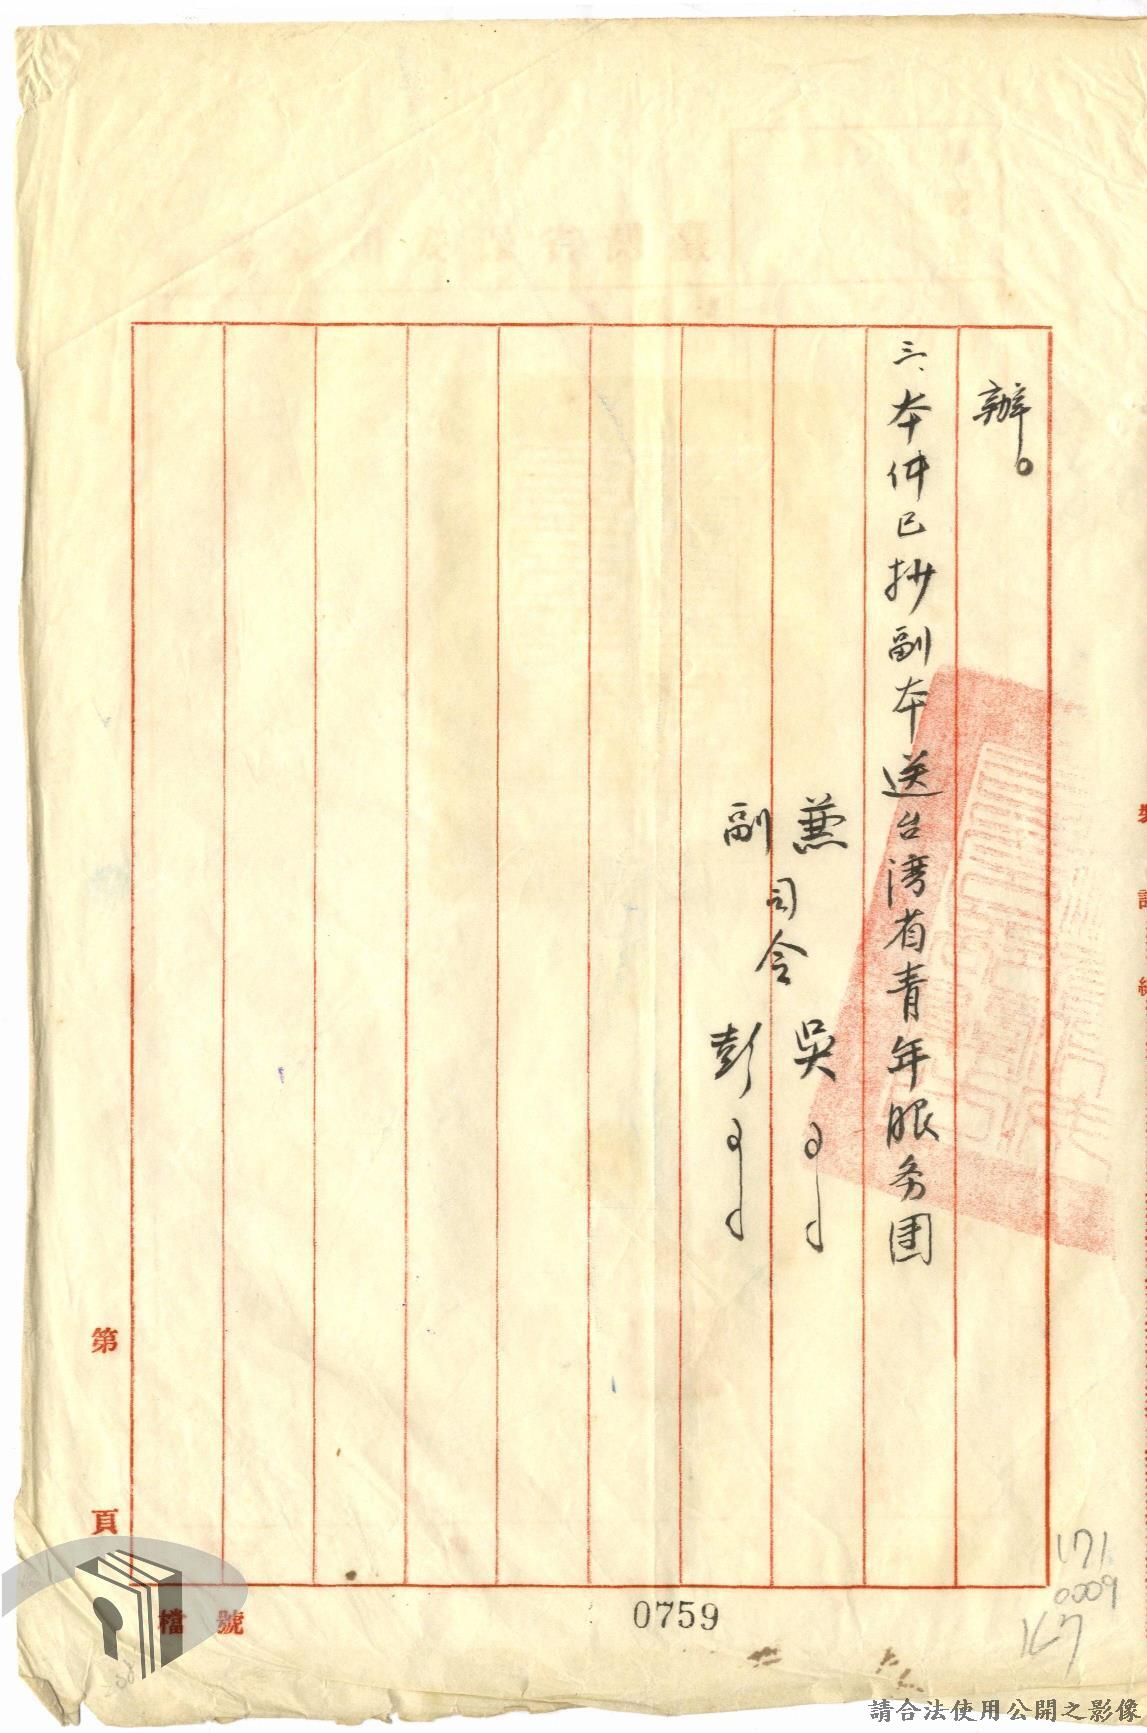 辦。
三、本件已抄副本送台湾省青年服务团
兼
副
司令
吳
彭
裝
訂
線
第
頁
檔 號
0759
171
0009
167
請合法使用公開之影像